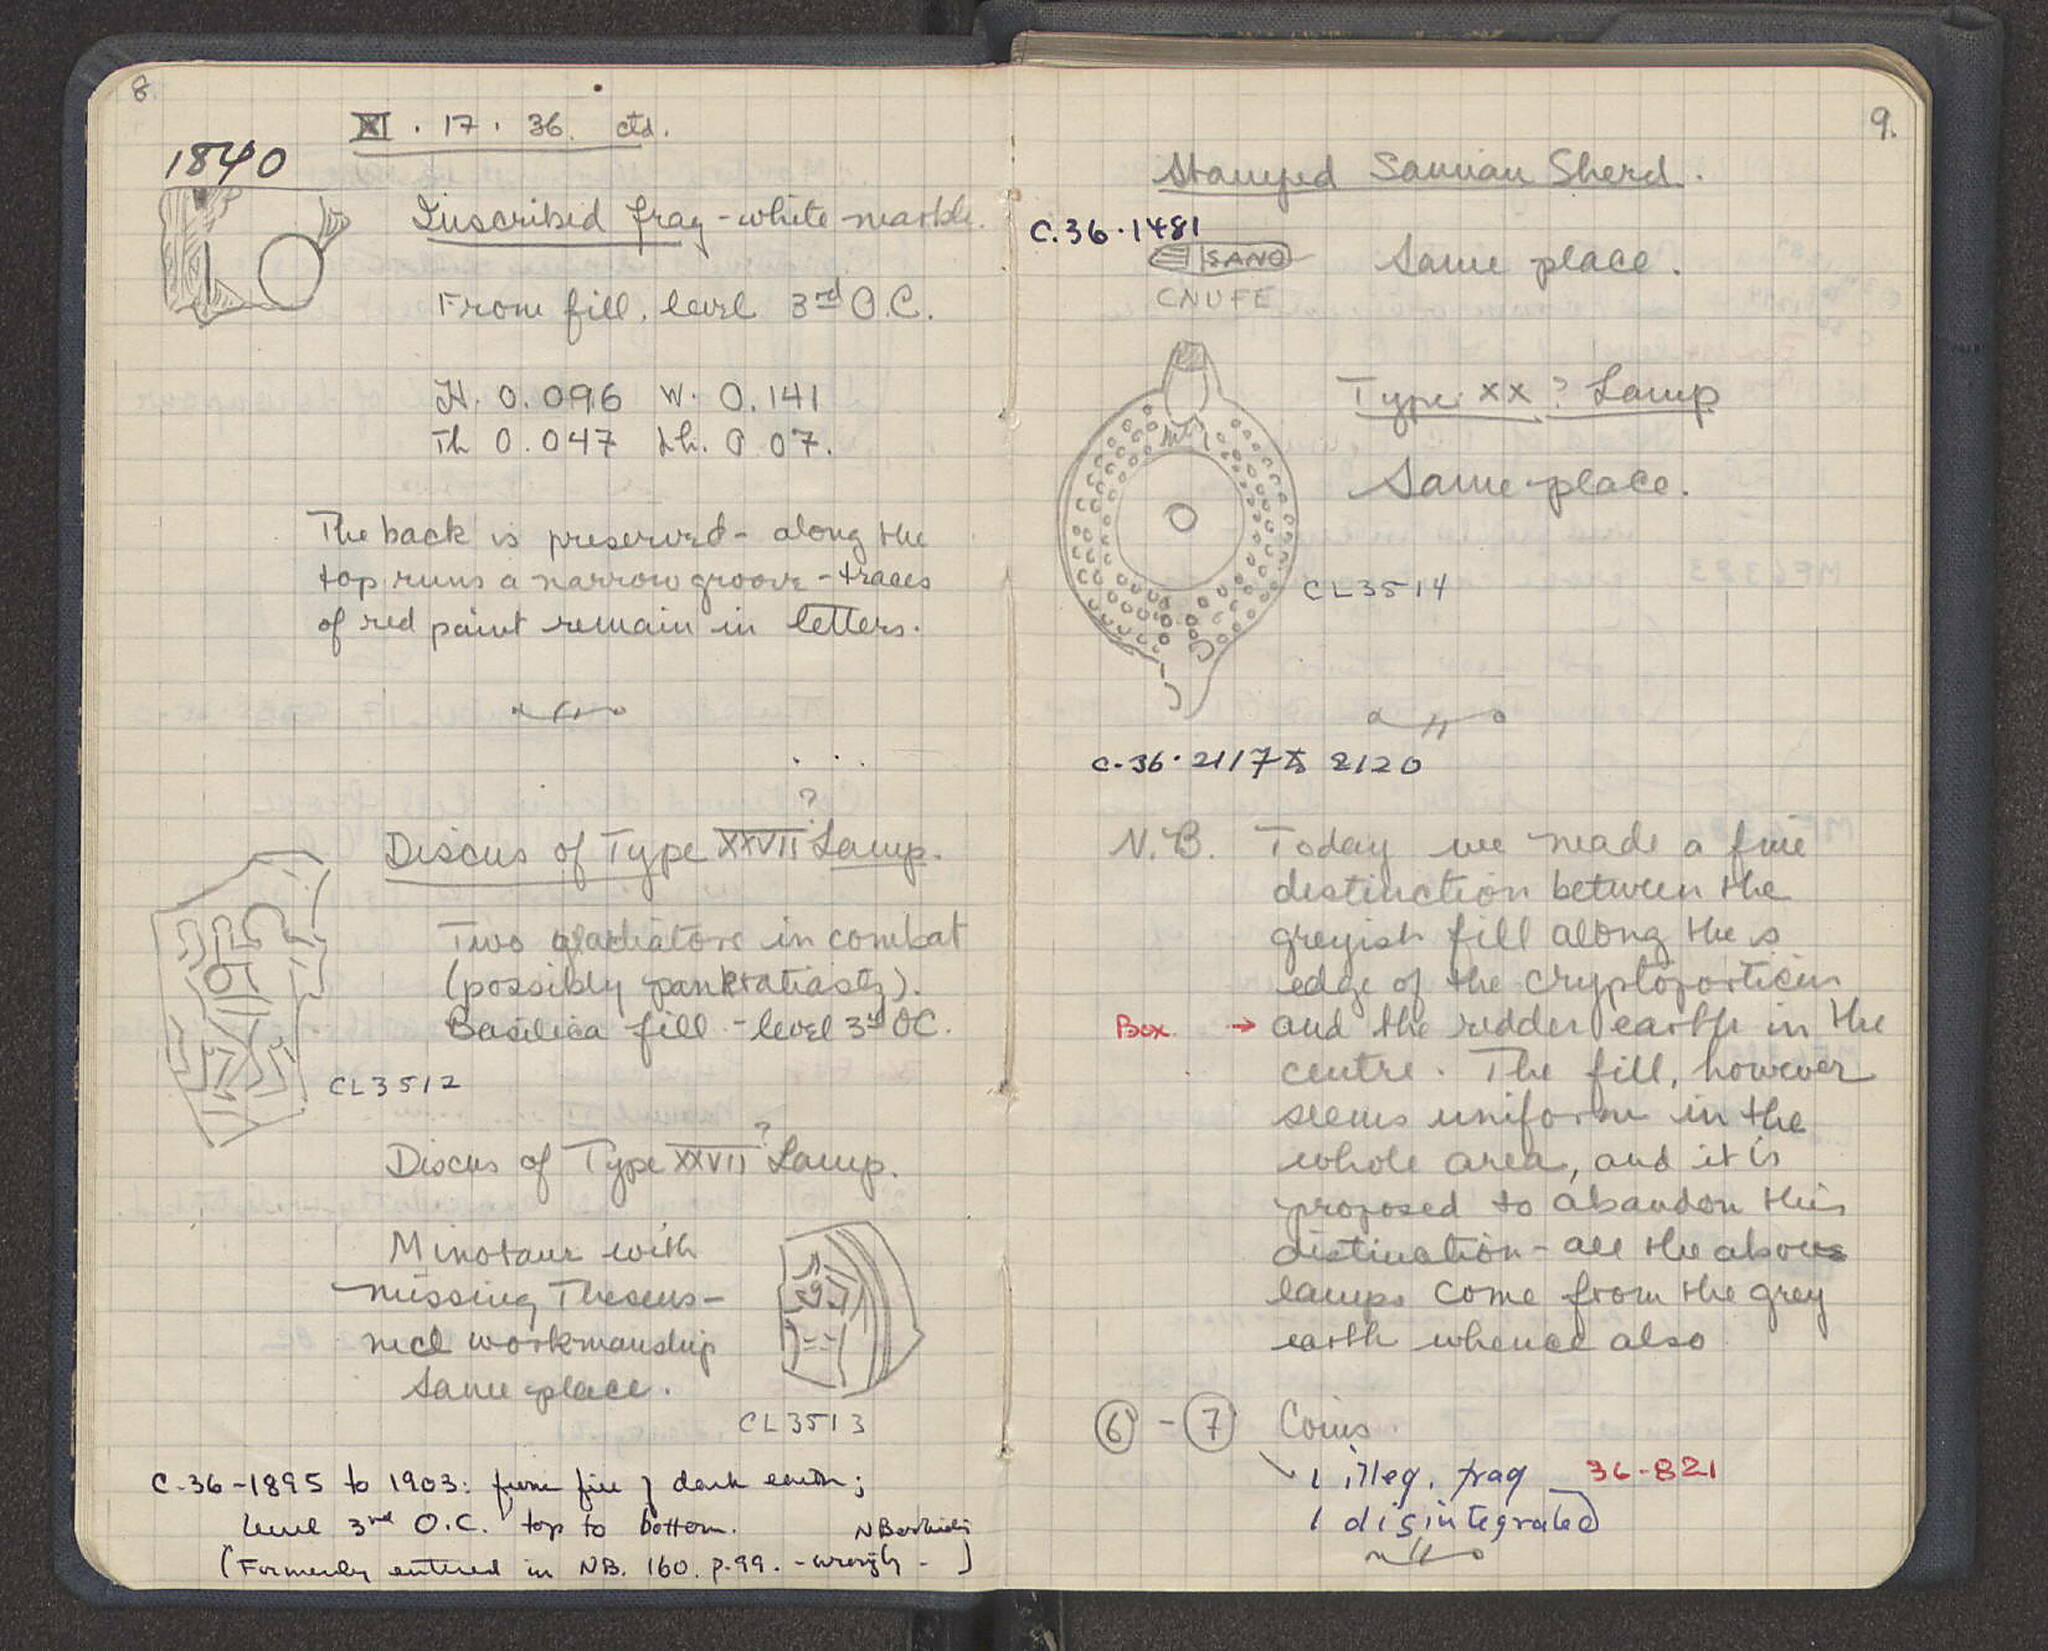 8.
XI . 17 . 36. ctd.
1840
Inscribed frag - white marble.
From fill, level 3rd O.C.
H. 0.096 W. 0.141
Th 0.047 Lh. 0.07.
The back is preserved - along the
top runs a narrow groove - traces
of red paint remain in letters.
?
Discus of Type XXVII Lamp.
Two gladiators in combat
(possibly pankratiasts).
Basilica fill - level 3rd OC.
CL3512
?
Discus of Type XXVII Lamp.
Minotaur with
missing Theseus -
nice workmanship
Same place.
CL3513
C-36-1895 to 1903: from fill of dark earth;
level 3rd O.C. top to bottom.
(Formerly entered in NB. 160. p.99. - wrongly - )
9.
Stamped Samian Sherd.
C.36.1481
SANO
CNUFE
Same place.
Type XX ? Lamp
Same place.
CL3514
C-36-2117 to 2120
N.B. Today we made a fine
distinction between the
greyish fill along the s
edge of the cryptoporticus
Box → and the redder earth in the
centre. The fill, however
seems uniform in the
whole area, and it is
proposed to abandon this
distinction - all the above
lamps come from the grey
earth whence also
6 - 7 Coins.
1 illeg. frag 36-821
1 disintegrated